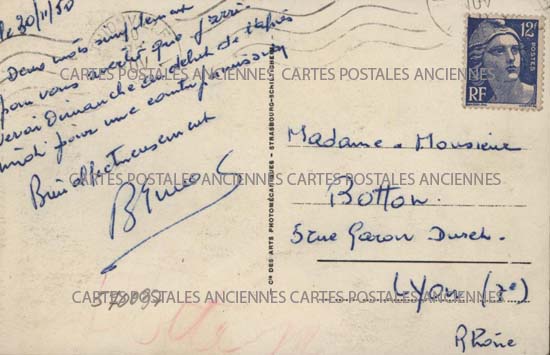 le 30/11/50
Deux mots simplement
pour vous avertir que j'arri
verai Dimanche au début de l'après
midi pour une
Bien affectueusement
CARTES POSTALES ANCIENNES CARTES POSTALES ANCIENNES
12F
POSTES
RF
Cie DES ARTS PHOTOMÉCANIQUES - STRASBOURG-SCHILTIGHEIM
Madame & Monsieur
CARTES POSTALES ANCIENNES CARTES POSTALES ANCIENNES
Botton.
5 rue Garon
CARTES POSTALES ANCIENNES CARTES POSTALES ANCIENNES
Lyon (7e)
Rhône